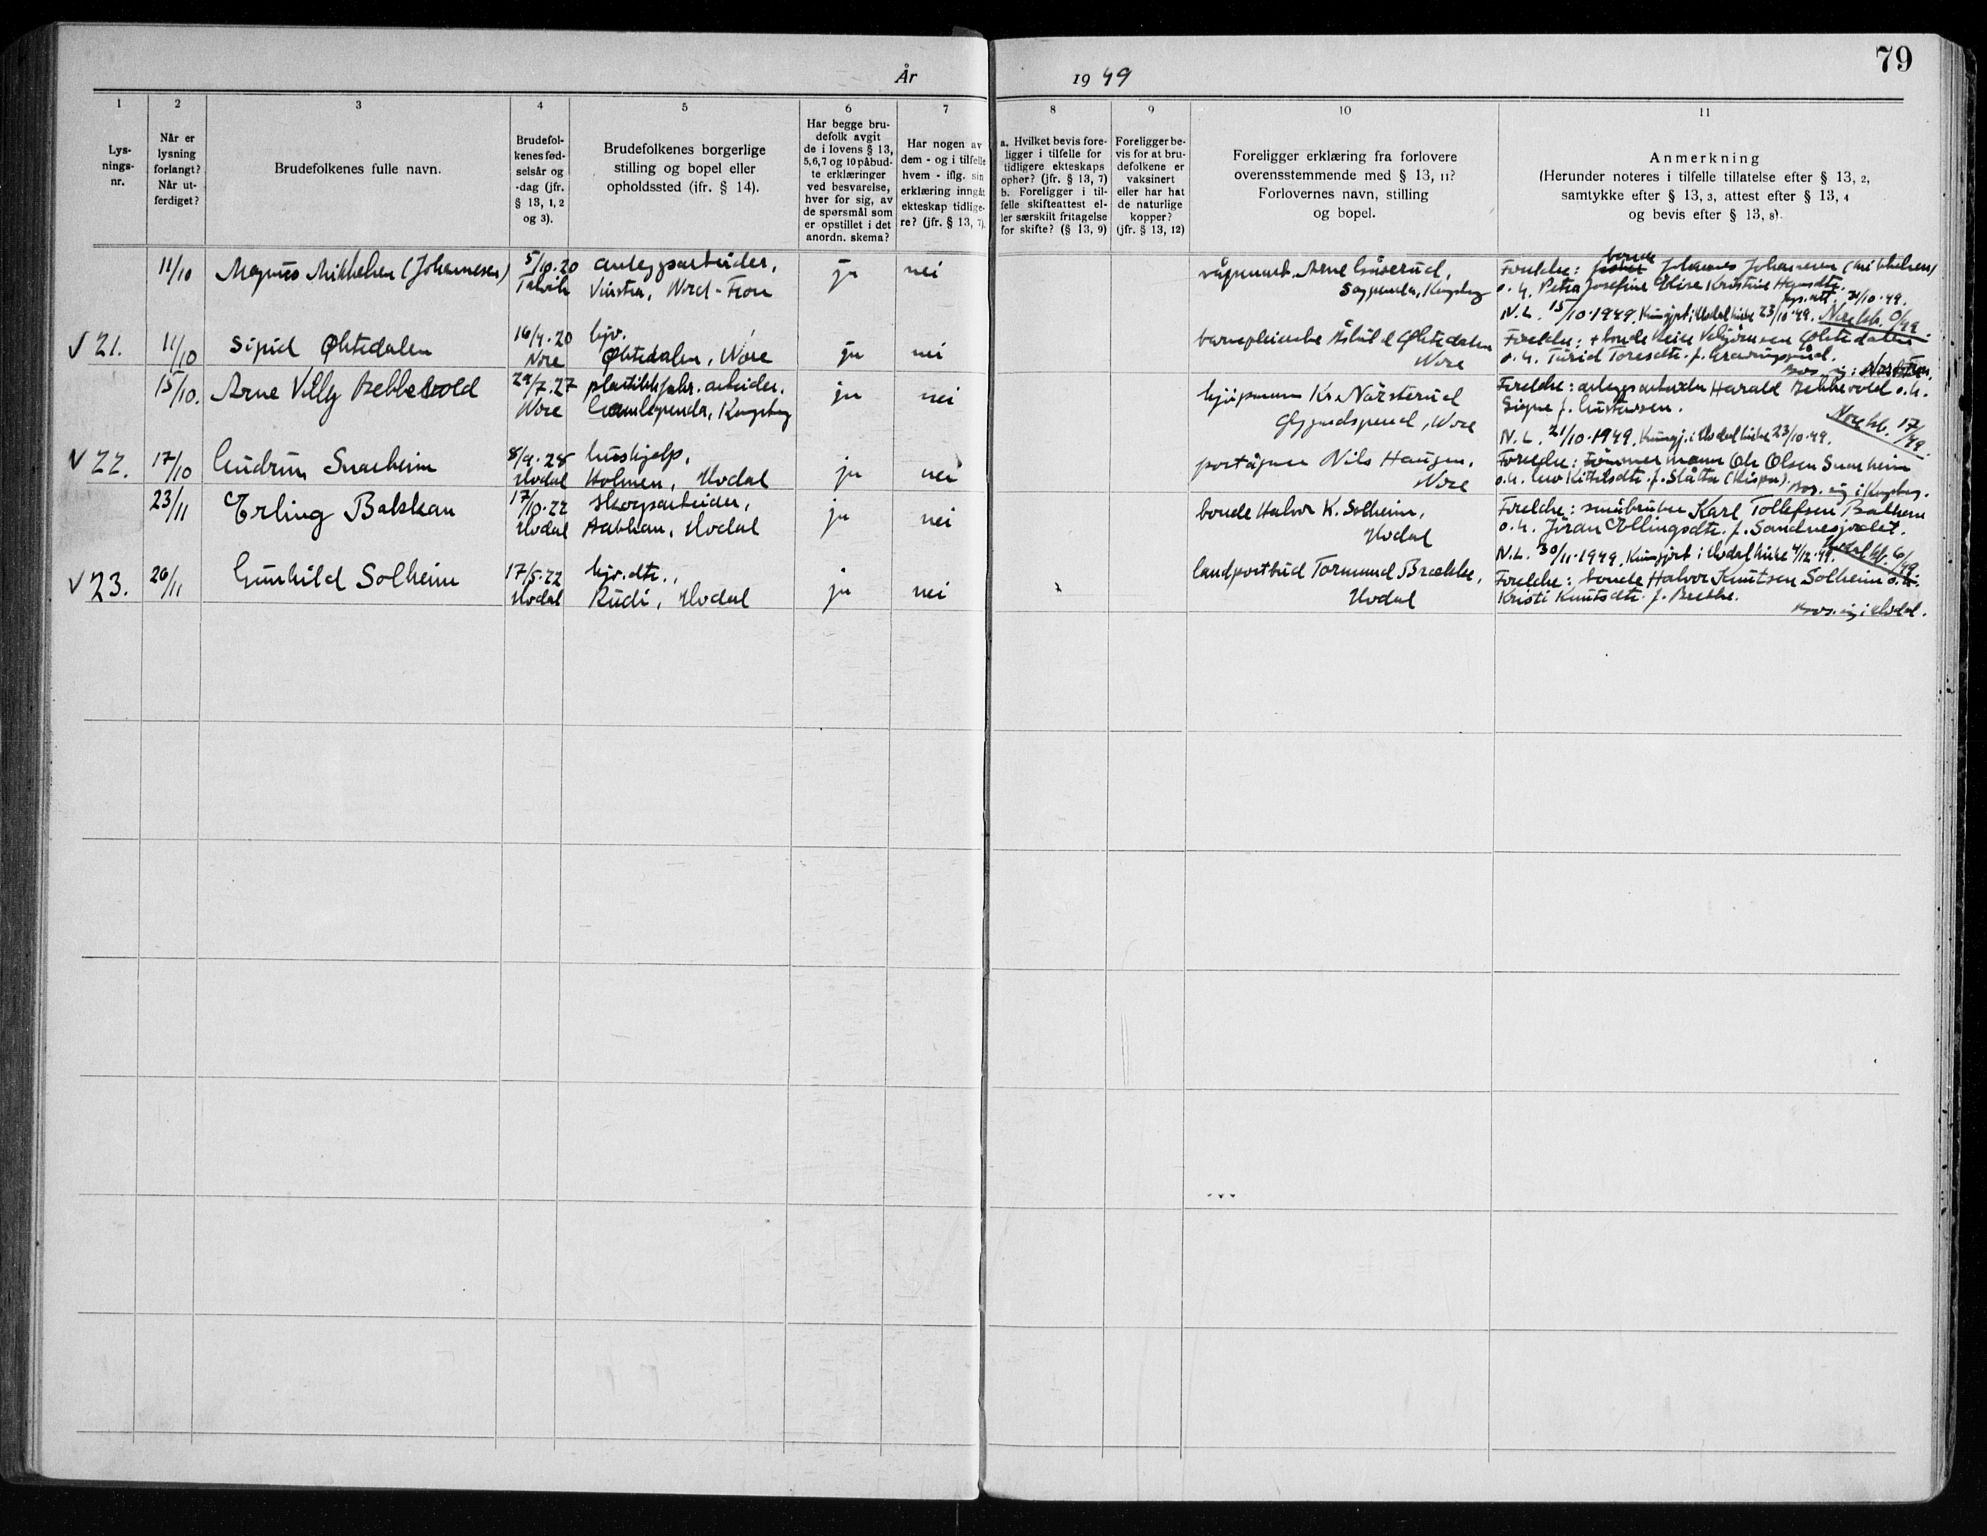 79
År 1949
1 2 3 4 5 6 7 8 9 10 11
Lys-
nings-
nr.
Når er
lysning
forlangt?
Når ut-
ferdiget?
Brudefolkenes fulle navn.
Brudefol-
kenes fød-
selsår og
-dag (jfr.
§ 13, 1, 2
og 3).
Brudefolkenes borgerlige
stilling og bopel eller
opholdssted (ifr. § 14).
Har begge bru-
defolk avgit
de i lovens § 13,
5,6,7 og 10 påbud-
te erklæringer
ved besvarelse,
hver for sig, av
de spørsmål som
er opstillet i det
anordn. skema?
Har nogen av
dem - og i tilfelle
hvem - iflg. sin
erklæring inngåt
ekteskap tidlige-
re? (jfr. § 13, 7).
a. Hvilket bevis fore-
ligger i tilfelle for
tidligere ekteskaps
ophør? (jfr. § 13, 7)
b. Foreligger i til-
felle skifteattest el-
ler særskilt fritagelse
for skifte? (§ 13, 9)
Foreligger be-
vis for at bru-
defolkene er
vaksinert
eller har hat
de naturlige
kopper?
(jfr. § 13, 12)
Foreligger erklæring fra forlovere
overensstemmende med § 13, 11?
Forlovernes navn, stilling
og bopel.
Anmerkning
(Herunder noteres i tilfelle tillatelse efter § 13, 2,
samtykke efter § 13, 3, attest efter § 13, 4
og bevis efter § 13, 8).
11/10 Magnus Mikkelsen (Johannesen) 5/10.20 anleggsarbeider, ja nei
Talvik Vinstra, Nord-Fron
våpenarb. Arne
Saggrenda, Kongsberg
bonde
Foreldre: Johannes Johannesen (Mikkelsen)
o. h. Petra Josefine Elise Kristine
31/10.49.
N.L. 15/10.1949. Kungjort i Uvdal kirke 23/10.49.
V 21. 11/10 Sigrid Øktedalen 16/4.20 hjv. ja nei
Nore Øktedalen, Nore
barnepleierske Øktedalen
Nore
Foreldre: + bonde Øktedalen
o. h. Turid Toresdtr. f.
15/10. Arne Villy Bekkevold 29/7.27 plastikkfabr. arbeider. ja nei
Nore Gamlegrenda, Kongsberg
kjøpmann Kr. Nørsterud
Nore
Foreldre: anleggsarbeider Harald Bekkevold o. h.
Signe f. Gustavsen.
Nore kb. 17/49.
N.L. 21/10.1949. Kungj. i Uvdal kirke 23/10.49.
V 22. 17/10 Gudrun Snarheim 8/9.28 hushjelp, ja nei
Uvdal Holmen, Uvdal
Nils Haugen,
Nore
Foreldre: Tømmermann Ole Olsen Snarheim
o. h. Liv Kittilsdtr. f. Slåtta
Bos. sig i Kongsberg.
23/11 Erling Bakkan 17/10.22 skogsarbeider, ja nei
Uvdal Uvdal
bonde Halvor K. Solheim,
Uvdal
Foreldre: småbruker Karl Tollefsen Bakken
o. h. Jøran Ellingsdtr. f.
Uvdal kb. 6/49.
N.L. 30/11.1949. Kungjort i Uvdal kirke 4/12.49.
V 23. 26/11 Gunhild Solheim 17/5.22 hjv. dtr., ja nei
Uvdal Rudi, Uvdal
landpostbud Tormund Brække,
Uvdal
Foreldre: bonde Halvor Knutsen Solheim o. h.
Kristi Knutsdtr. f. Brekke.
Bos. sig i Uvdal.